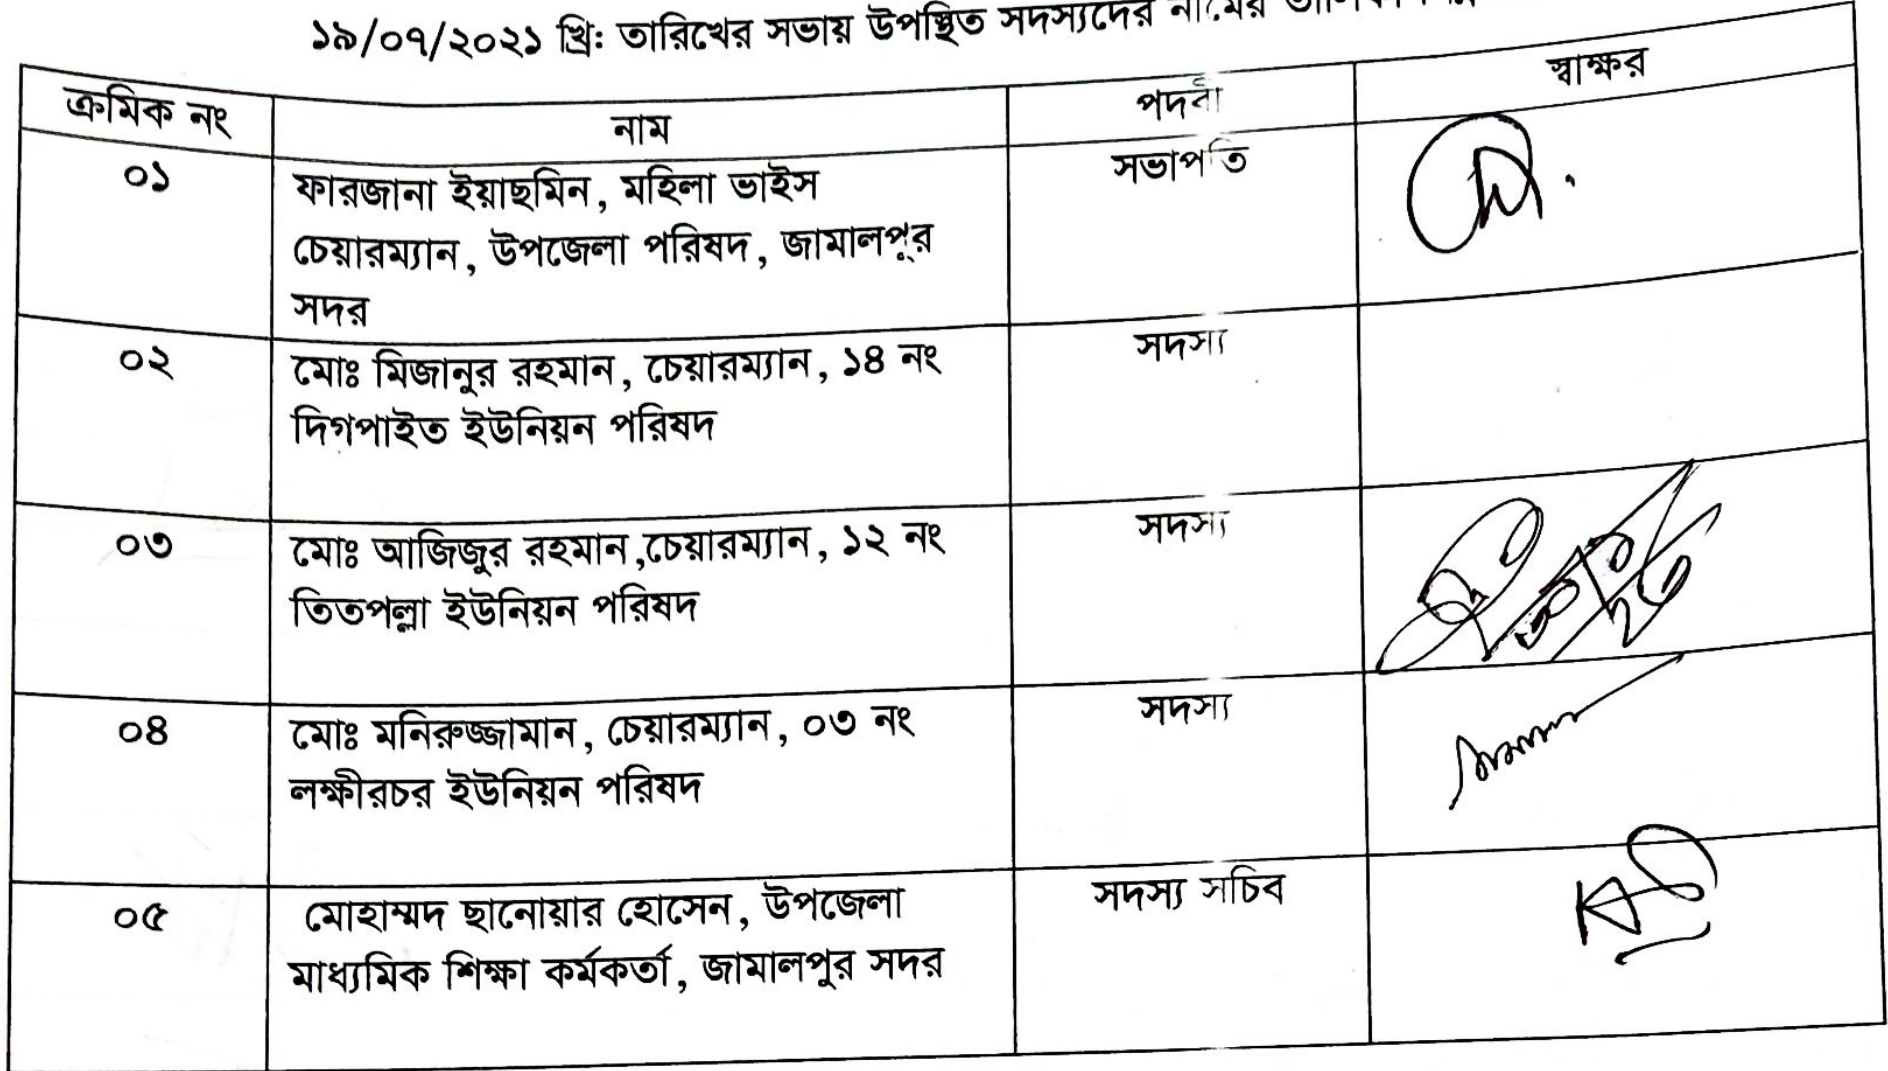 ১৯/০৭/২০২১ খ্রি: তারিখের সভায় উপস্থিত সদস্যদের নামের
ক্রমিক নং নাম পদবী স্বাক্ষর
০১ ফারজানা ইয়াছমিন, মহিলা ভাইস সভাপতি
চেয়ারম্যান, উপজেলা পরিষদ, জামালপুর
সদর
০২ মোঃ মিজানুর রহমান, চেয়ারম্যান, ১৪ নং সদস্য
দিগপাইত ইউনিয়ন পরিষদ
০৩ মোঃ আজিজুর রহমান,চেয়ারম্যান, ১২ নং সদস্য
তিতপল্লা ইউনিয়ন পরিষদ
০৪ মোঃ মনিরুজ্জামান, চেয়ারম্যান, ০৩ নং সদস্য
লক্ষীরচর ইউনিয়ন পরিষদ
০৫ মোহাম্মদ ছানোয়ার হোসেন, উপজেলা সদস্য সচিব
মাধ্যমিক শিক্ষা কর্মকর্তা, জামালপুর সদর